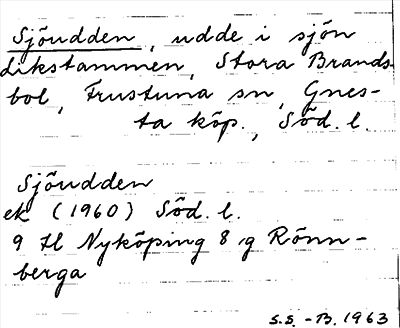 Sjöudden, udde i sjön
dikstammen, Stora Brands-
bol, Frustuna sn, Gnes-
ta köp., Söd. l.
Sjöudden
ek (1960) Söd. l.
9 H Nyköping 8 g Rönn-
berga
S.S. -B. 1963